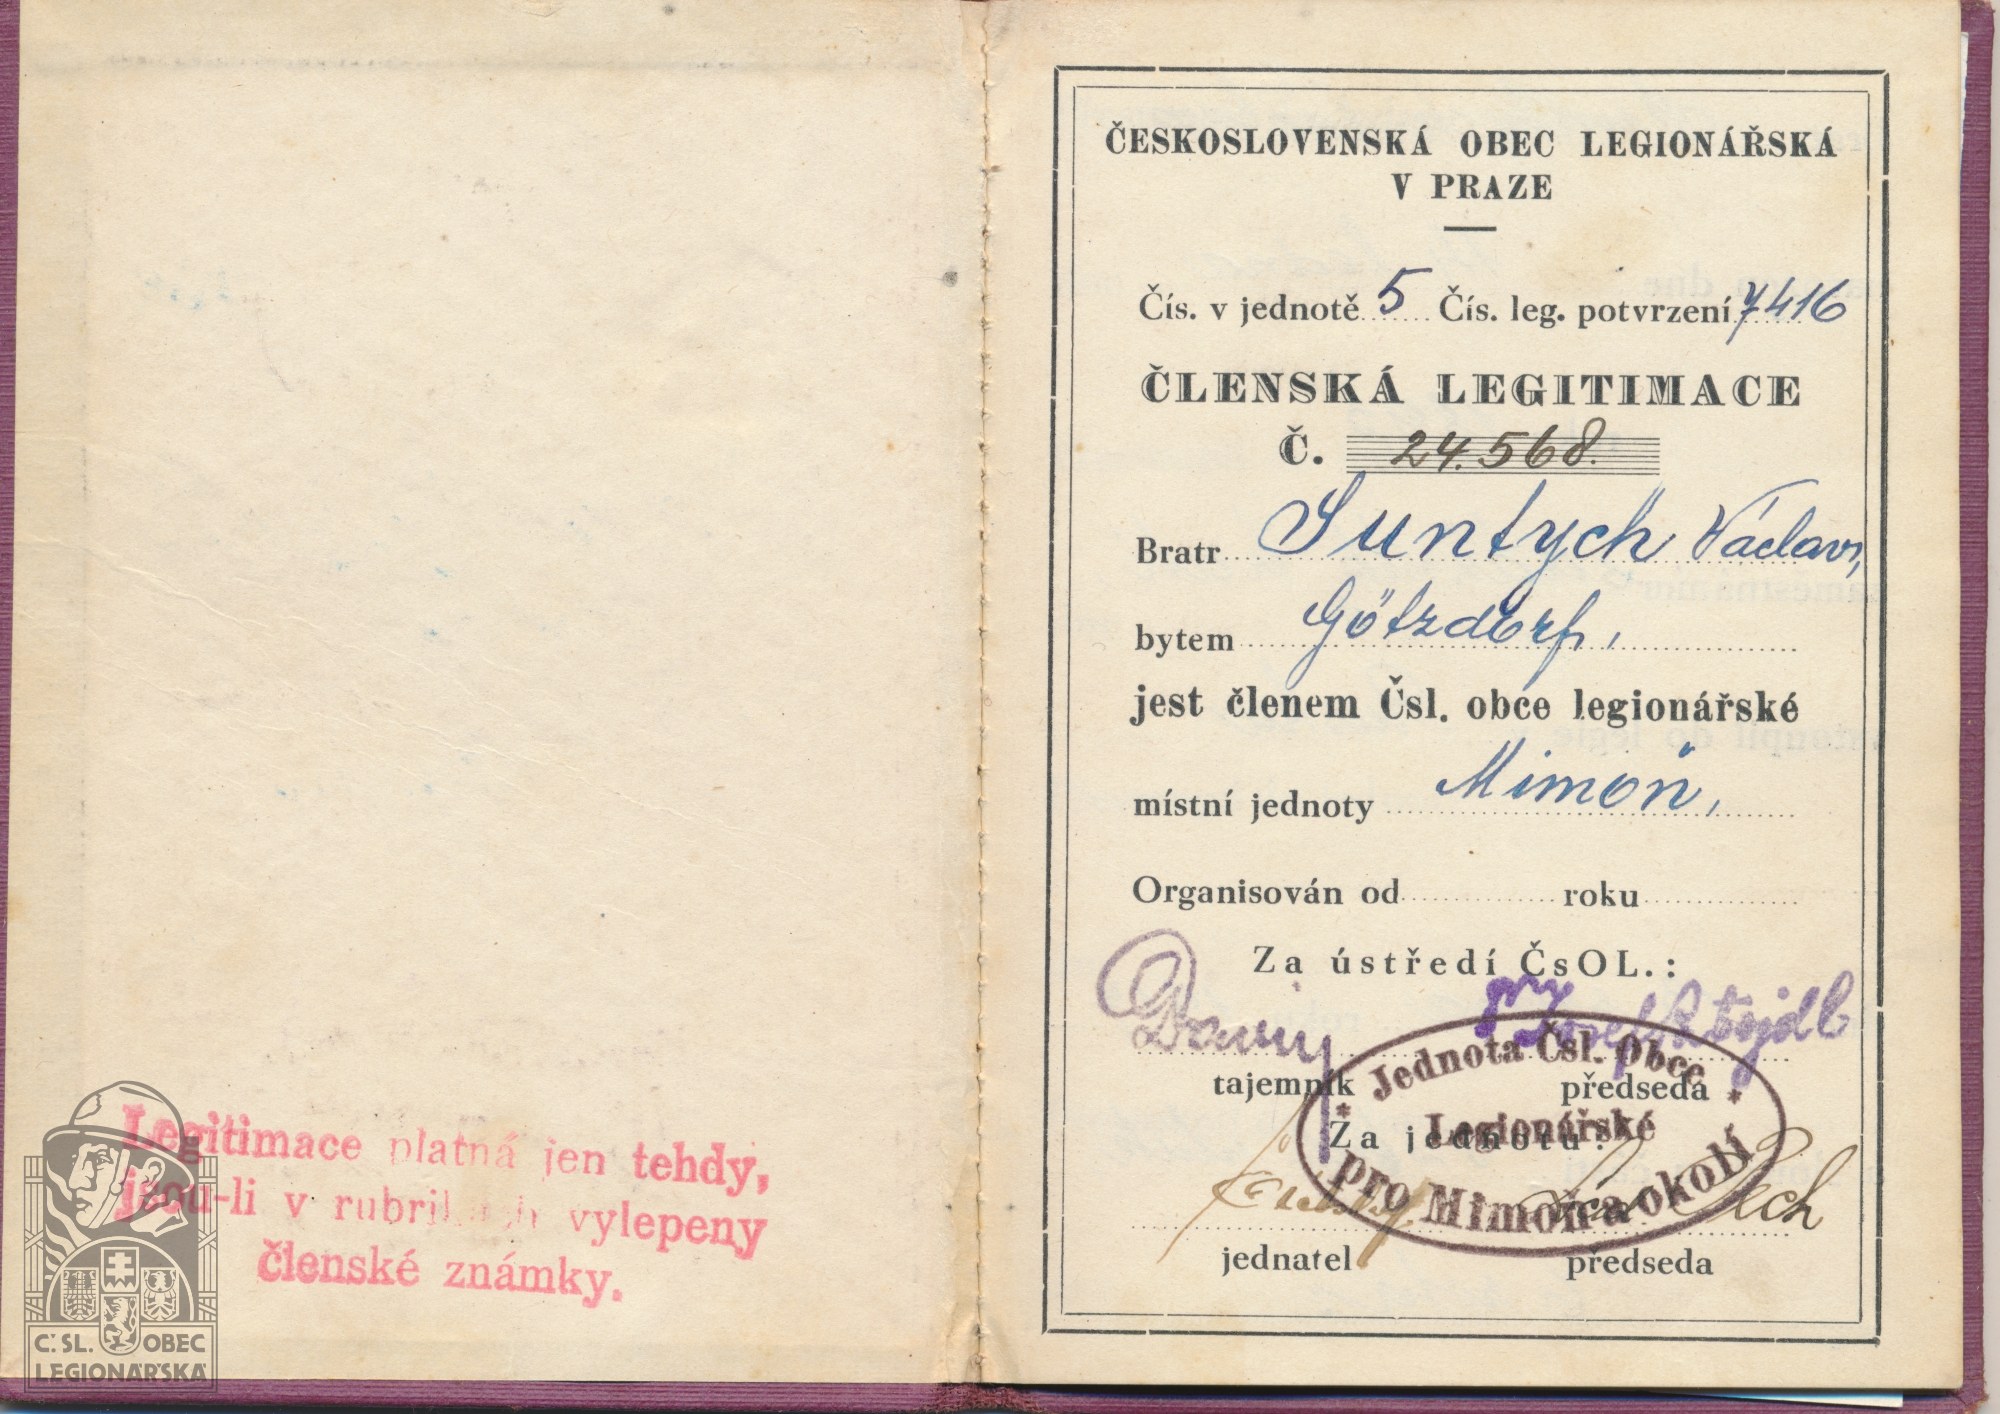 Legitimace platná jen tehdy,
jsou-li v rubrikách vylepeny
členské známky.
Č.SL. OBEC
LEGIONÁŘSKÁ
ČESKOSLOVENSKÁ OBEC LEGIONÁŘSKÁ
V PRAZE
Čís. v jednotě 5 Čís. leg. potvrzení 7416
ČLENSKÁ LEGITIMACE
Č. 24.568.
Bratr Suntych Václav,
bytem Götzdorf,
jest členem Čsl. obce legionářské
místní jednoty Mimoň,
Organisován od roku
Za ústředí ČsOL.:
tajemník předseda
Za jednotu:
Jednota Čsl. Obce
Legionářské
pro Mimoň a okolí
jednatel předseda